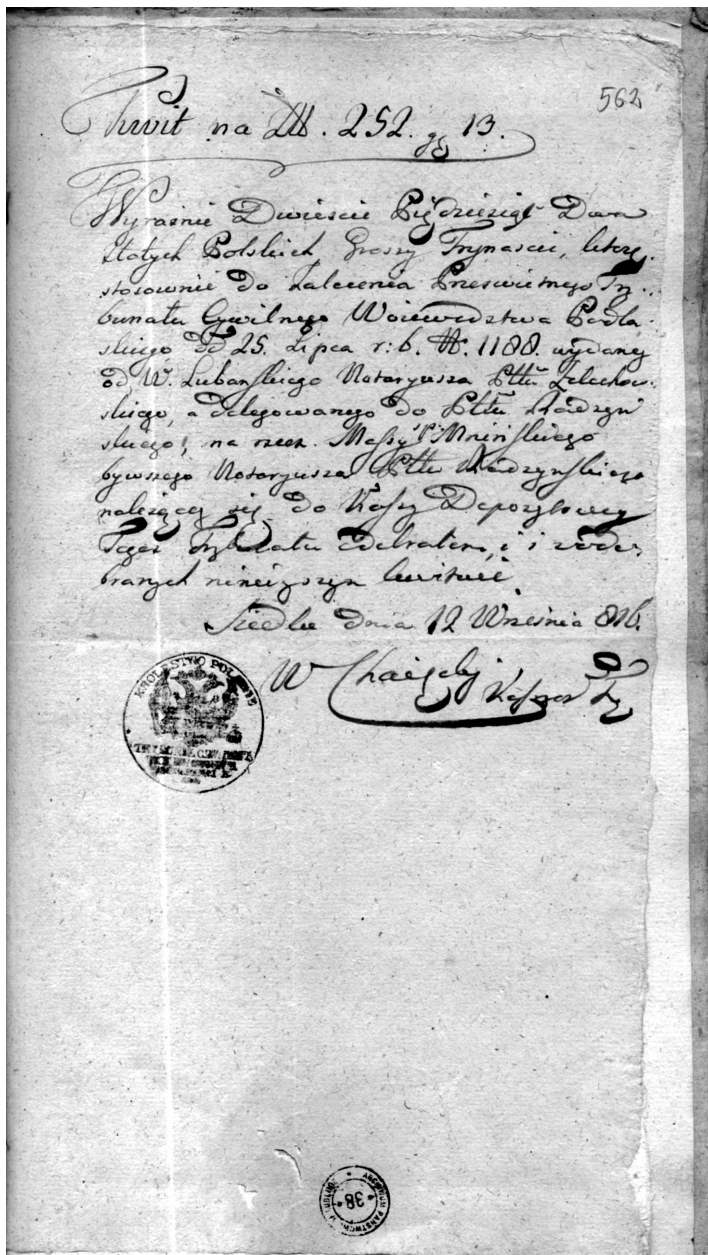 562
Kwit na Złł. 252. gr 13.
Wyraśnie Dwieście Pięćdziesiąt Dwa
Złotych Polskich, Groszy Trzynaście, które
stosownie do Zalecenia Prześwietnego Try-
bunału Cywilnego Woiewództwa Podla-
skiego od 25. Lipca r: b. N. 1188. wydaney
od W. Lubańskiego Notaryusza Pttu Zelechow-
skiego, a delegowanego do Pttu Radzyń
skiego, na rzecz Massy Mnińskiego
bywszego Notaryusza Pttu Radzynskiego
należącey się do Kassy Depozytowey
Tegoż Trybunału odebrałem, i z ode-
branych ninieyszym kwituię
Siedlce dnia 12 Września 816.
W Kassyer Try
KRÓLESTWO POLSKIE
ARCHIWUM PAŃSTWOWE W LUBLINIE
38